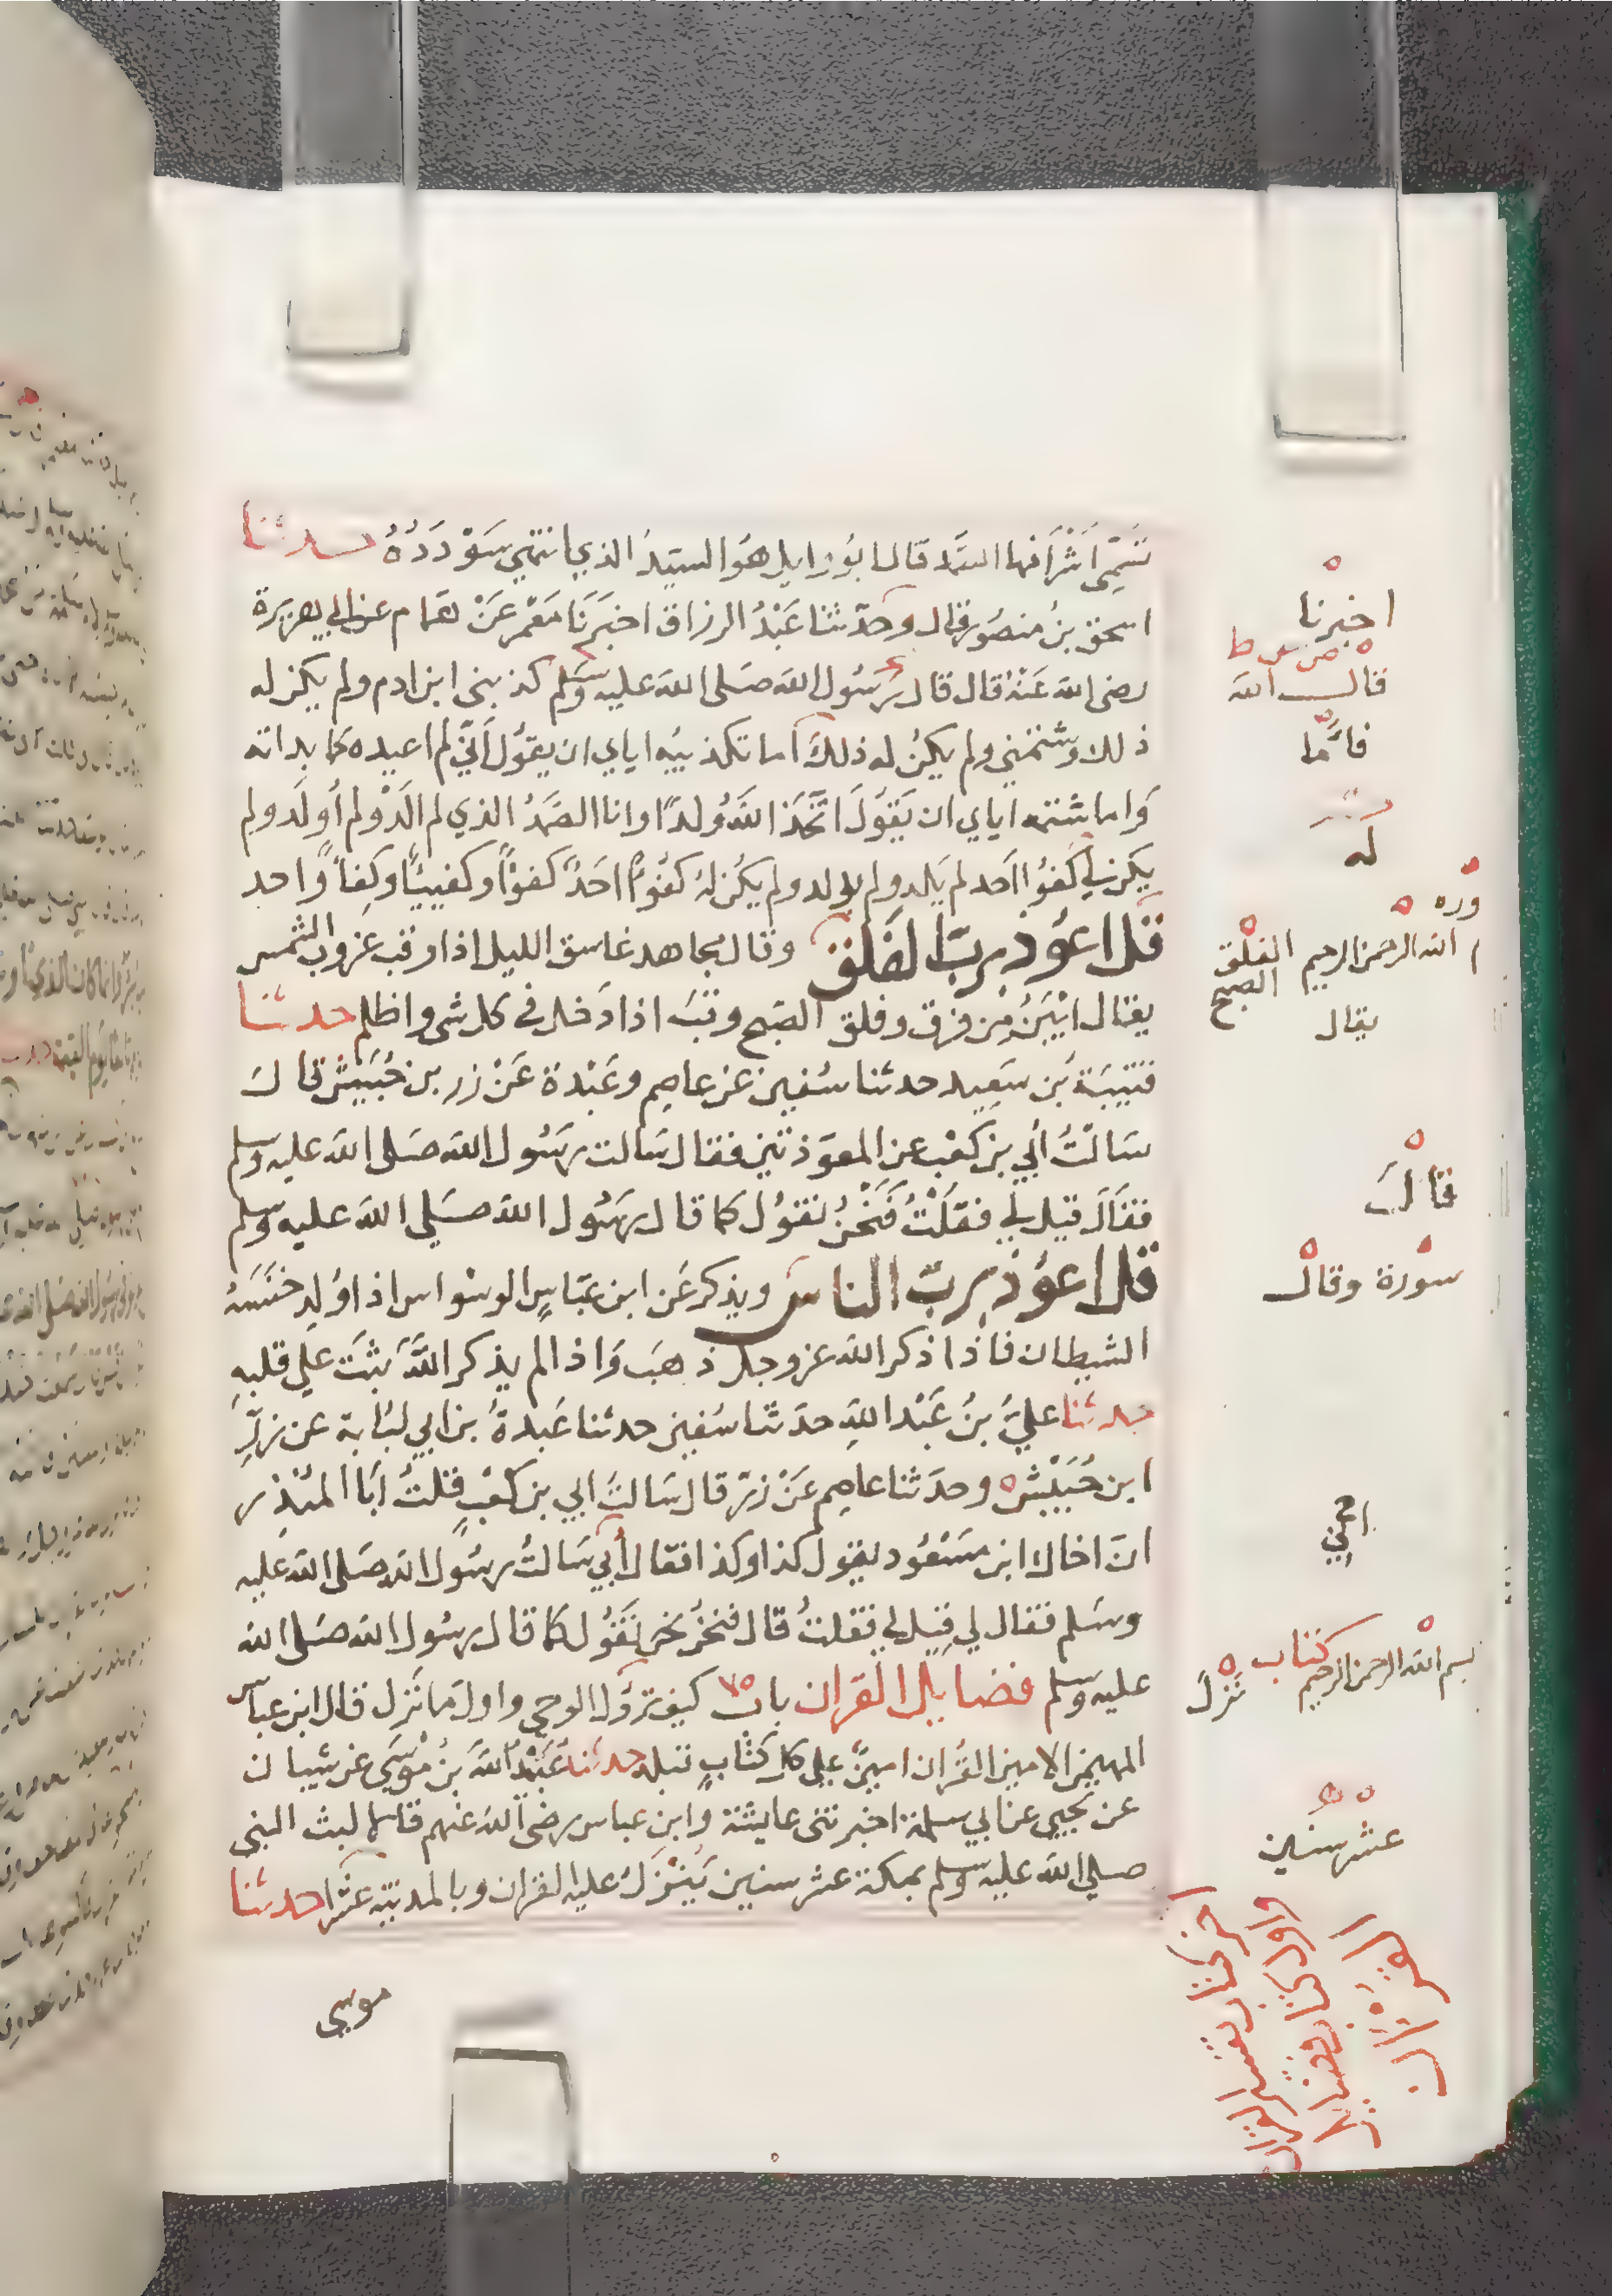 تسمي اشرافها الصمد قال ابو وايل هو السيد الذي انتهي سودده حدثنا
اسحق بن منصور قال وحدثنا عبد الرزاق اخبرنا معمر عن همام عن ابي هريرة
رضى الله عنه قال قال رسول الله صلى الله عليه وسلم كذبنى ابن ادم ولم يكن له
ذلك وشتمني ولم يكن له ذلك اما تكذيبه اياي ان يقول اني لم اعيده كما بداته
واما شتمه اياي ان يقول اتخذ الله ولدا وانا الصمد الذي لم الد ولم اولد ولم
يكن لي كفوا احد لم يلد ولم يولد ولم يكن له كفوا احد كفوا وكفييا وكفا واحد
قل اعوذ برب الفلق وقال مجاهد غاسق الليل اذا وقب غروب الشمس
يقال ابين من فرق وفلق الصبح وقب اذا دخل في كل شى واظلم حدثنا
قتيبة بن سعيد حدثنا سفين عن عاصم وعبدة عن زر بن حبيش قال
سالت ابي بن كعب عن المعوذتين فقال سالت رسول الله صلى الله عليه وسلم
فقال قيل لي فقلت فنحن نقول كما قال رسول الله صلي الله عليه وسلم
قل اعوذ برب الناس ويذكر عن ابن عباس الوسواس اذا ولد خنسه
الشيطان فاذا ذكر الله عز وجل ذهب واذا لم يذكر الله ثبت علي قلبه
حدثنا علي بن عبد الله حدثنا سفين حدثنا عبدة بن ابي لبابة عن زر
ابن حبيش ه وحدثنا عاصم عن زر قال سالت ابي بن كعب قلت ابا المنذر
ان اخاك ابن مسعود يقول كذا وكذا فقال ابي سالت رسول الله صلى الله عليه
وسلم فقال لي قيل لي فقلت قال فنحن نقول كما قال رسول الله صلى الله
عليه وسلم فضايل القران باب كيف نزول الوحي واول ما نزل قال ابن عباس
المهيمن الامين القران امين على كل كتاب قبله حدثنا عبيد الله بن موسي عن شيبان
عن يحيي عن ابي سلمة اخبرتنى عايشة وابن عباس رضى الله عنهم قالا لبث النبي
صلي الله عليه وسلم بمكة عشر سنين ينزل عليه القران وبالمدينة عشرا حدثنا
موسي
اخبرنا
قال الله
فاما
له
الفلق
الله الرحمن الرحيم
الصبح
يقال
قال
سورة وقال
بسم الله الرحمن الرحيم
كتاب
نزل
عشر سنين
اخر كتاب تفسير القران
واول كتاب فضايل
القرآن